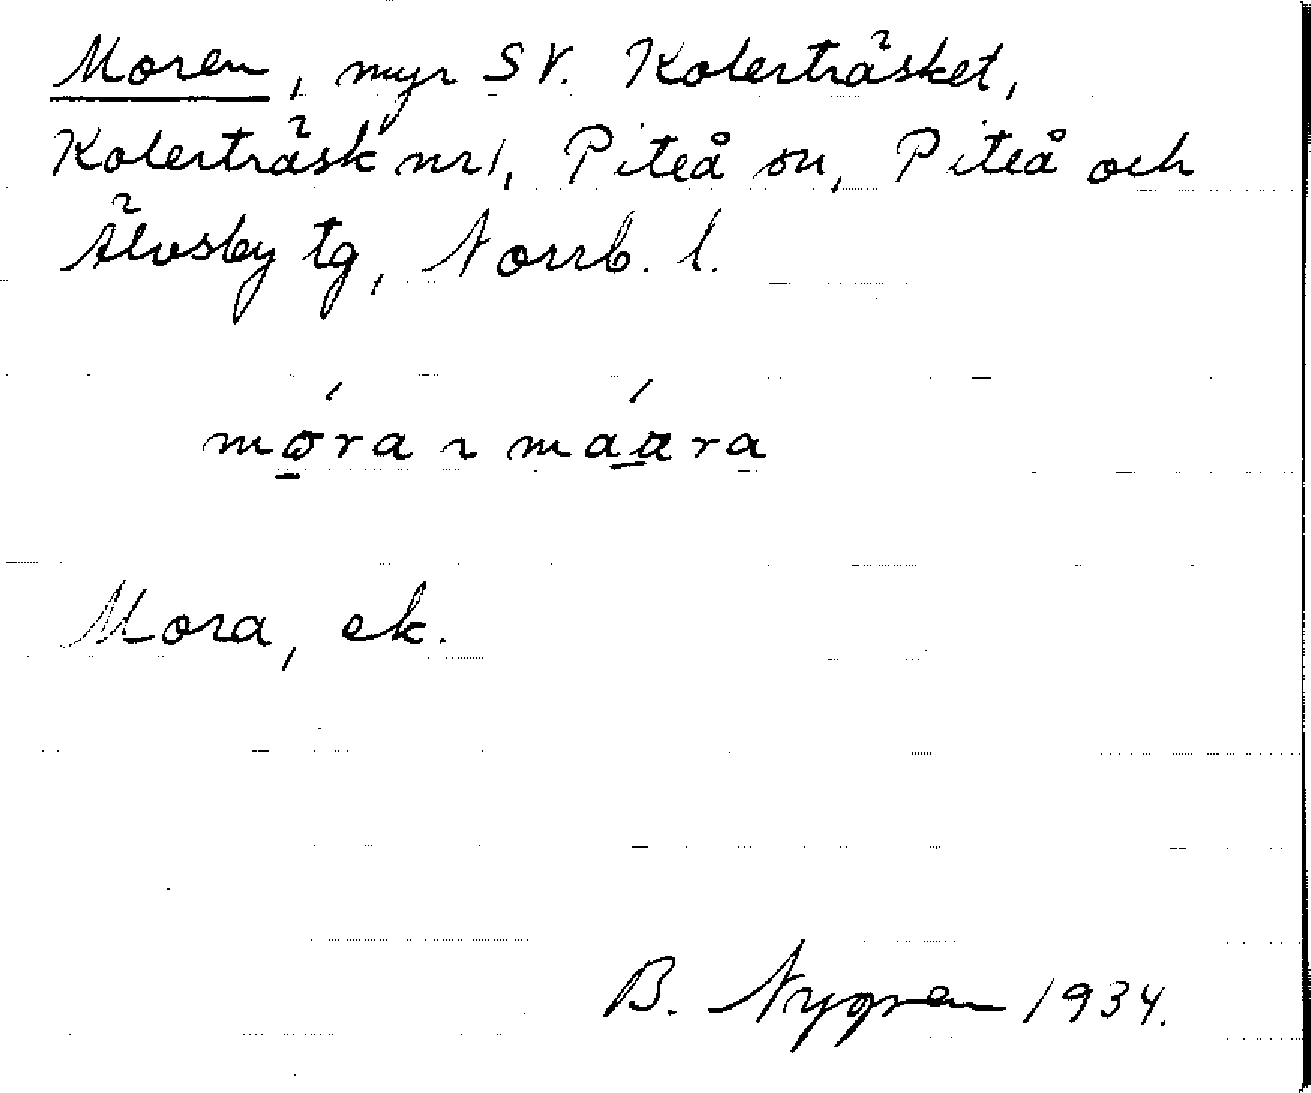 Moren, myr SV. Kolerträsket,
Kolerträsk nr 1, Piteå sn, Piteå och
Älvsby tg, Norrb. l.
mo̱ra ~ maa̱ra
Mora, ek.
B. Nygren 1934.